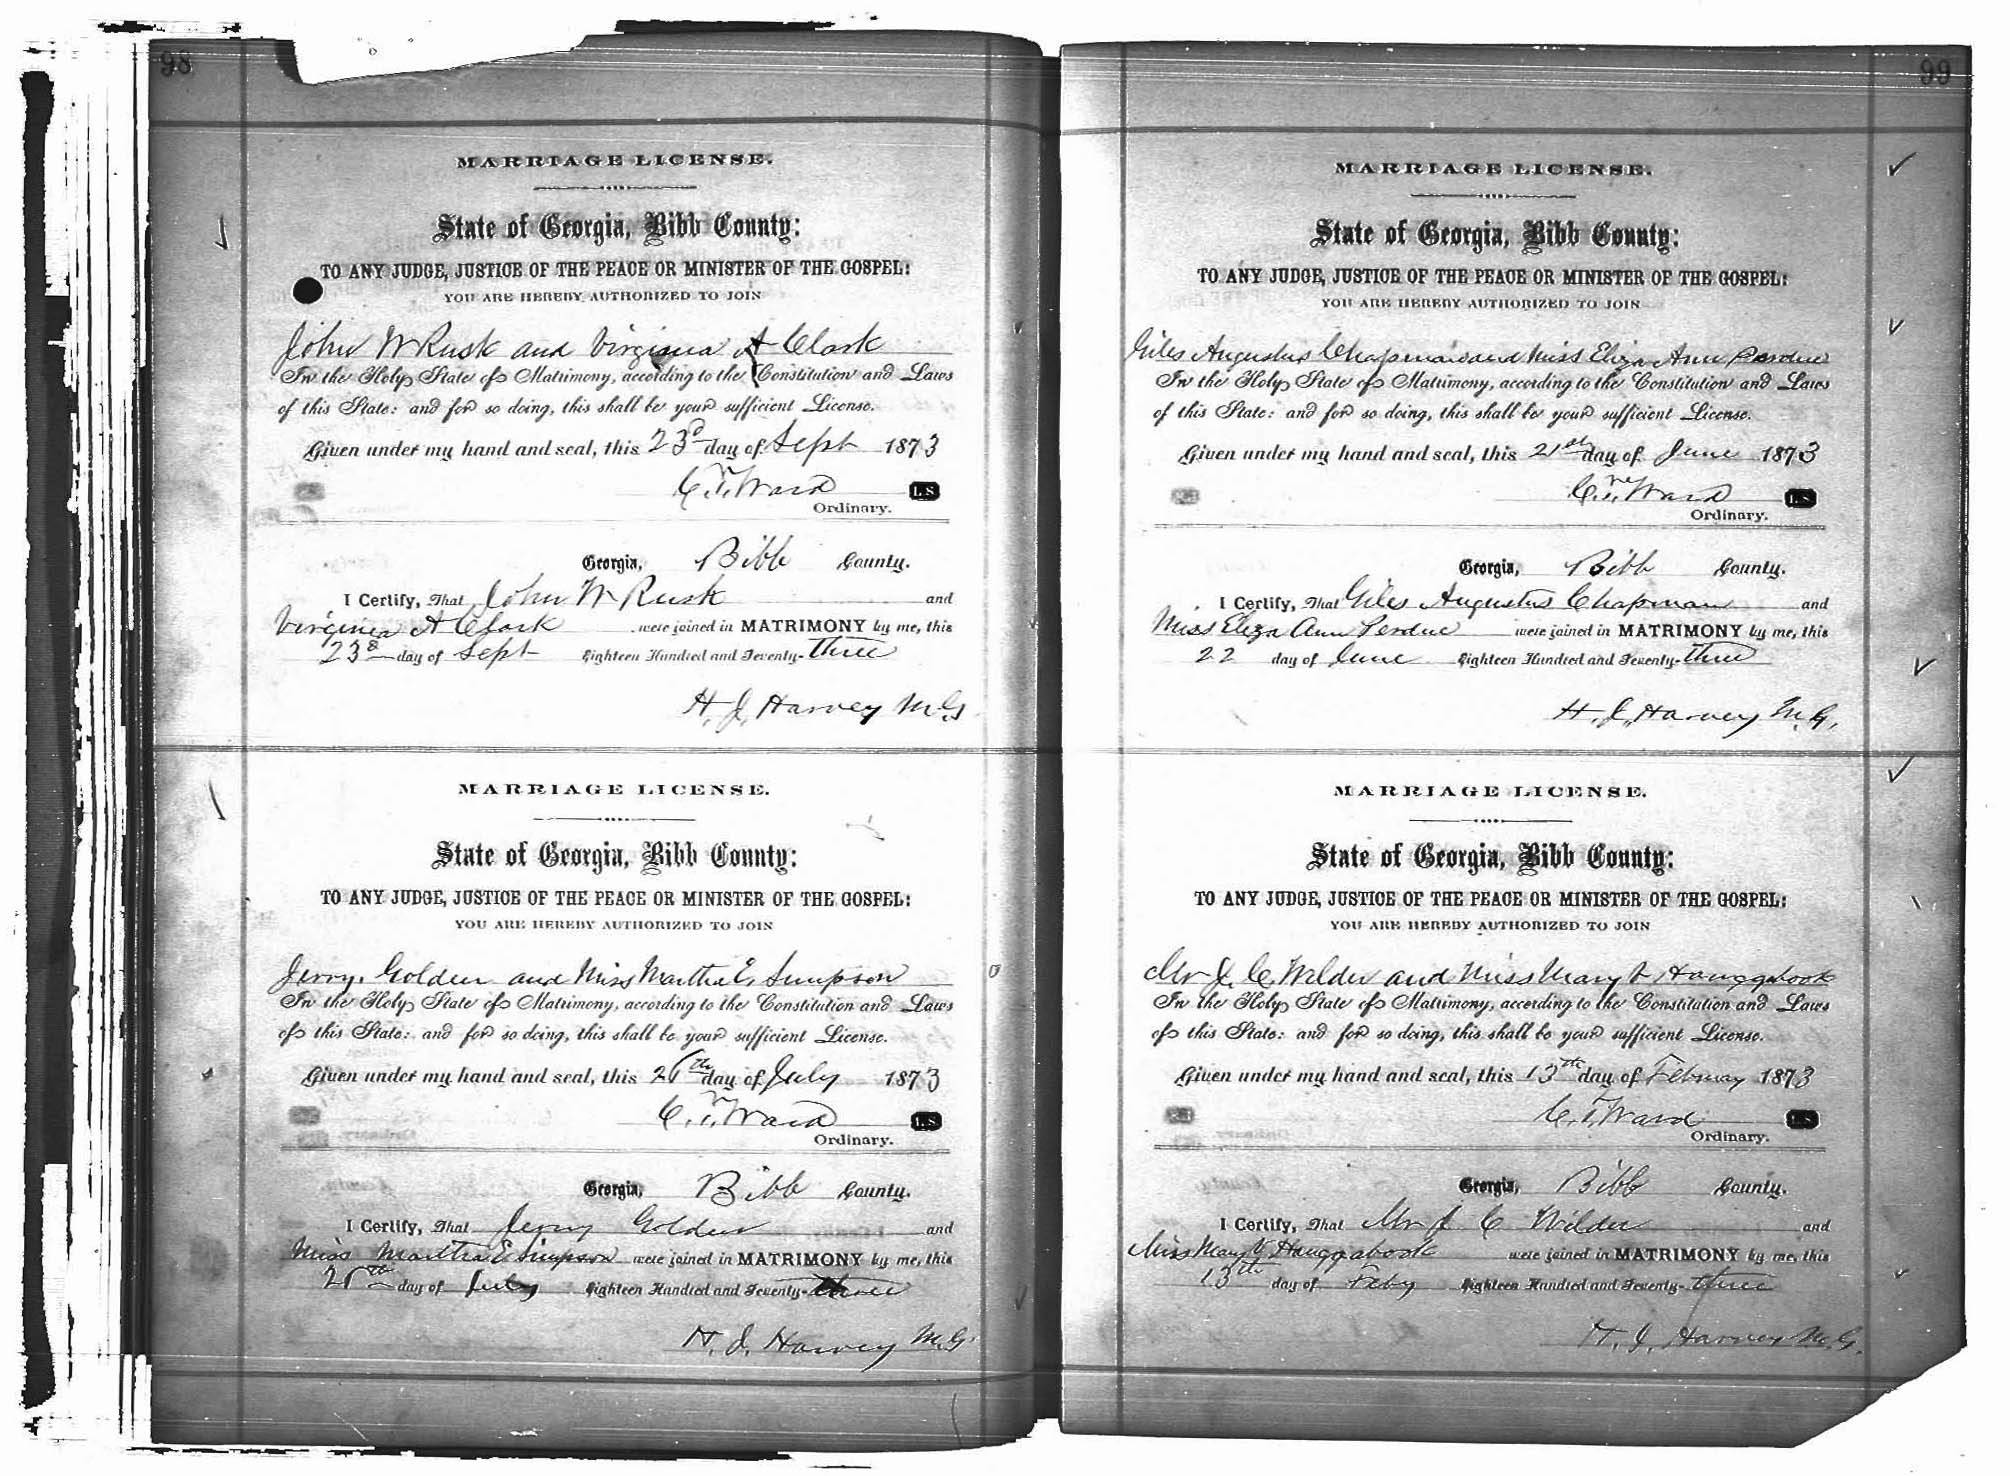 98
MARRIAGE LICENSE.
State of Georgia, Bibb County:
TO ANY JUDGE, JUSTICE OF THE PEACE OR MINISTER OF THE GOSPEL:
YOU ARE HEREBY AUTHORIZED TO JOIN
John W Rusk and Virginia A Clark
In the Holy State of Matrimony, according to the Constitution and Laws
of this State: and for so doing, this shall be your sufficient License.
Given under my hand and seal, this 23d day of Sept 1873
C. T. Ward L.S.
Ordinary.
Georgia, Bibb County.
I Certify, That John W Rusk and
Virginia A Clark were joined in MATRIMONY by me, this
23d day of Sept Eighteen Hundred and Seventy-three
H. J. Harvey M.G.
MARRIAGE LICENSE.
State of Georgia, Bibb County:
TO ANY JUDGE, JUSTICE OF THE PEACE OR MINISTER OF THE GOSPEL:
YOU ARE HEREBY AUTHORIZED TO JOIN
Jerry Golden and Miss Martha E. Simpson
In the Holy State of Matrimony, according to the Constitution and Laws
of this State: and for so doing, this shall be your sufficient License.
Given under my hand and seal, this day of July 1873
C. T. Ward L.S.
Ordinary.
Georgia, Bibb County.
I Certify, That Jerry Golden and
Miss Martha E Simpson were joined in MATRIMONY by me, this
day of July Eighteen Hundred and Seventy-three
H. J. Harvey M.G.
99
MARRIAGE LICENSE.
State of Georgia, Bibb County:
TO ANY JUDGE, JUSTICE OF THE PEACE OR MINISTER OF THE GOSPEL:
YOU ARE HEREBY AUTHORIZED TO JOIN
Giles Augustus Chapman and Miss Eliza Ann Perdue
In the Holy State of Matrimony, according to the Constitution and Laws
of this State: and for so doing, this shall be your sufficient License.
Given under my hand and seal, this 21st day of June 1873
C. T. Ward L.S.
Ordinary.
Georgia, Bibb County.
I Certify, That Giles Augustus Chapman and
Miss Eliza Ann Perdue were joined in MATRIMONY by me, this
22 day of June Eighteen Hundred and Seventy-three
H. J. Harvey M.G.
MARRIAGE LICENSE.
State of Georgia, Bibb County:
TO ANY JUDGE, JUSTICE OF THE PEACE OR MINISTER OF THE GOSPEL:
YOU ARE HEREBY AUTHORIZED TO JOIN
Mr J. C. Wilder and Miss Mary V Hauggabook
In the Holy State of Matrimony, according to the Constitution and Laws
of this State: and for so doing, this shall be your sufficient License.
Given under my hand and seal, this 13th day of Febuay 1873
C. T. Ward L.S.
Ordinary.
Georgia, Bibb County.
I Certify, That Mr J C Wilder and
Miss Mary V Hauggabook were joined in MATRIMONY by me, this
13th day of Feby Eighteen Hundred and Seventy-three
H. J. Harvey M.G.